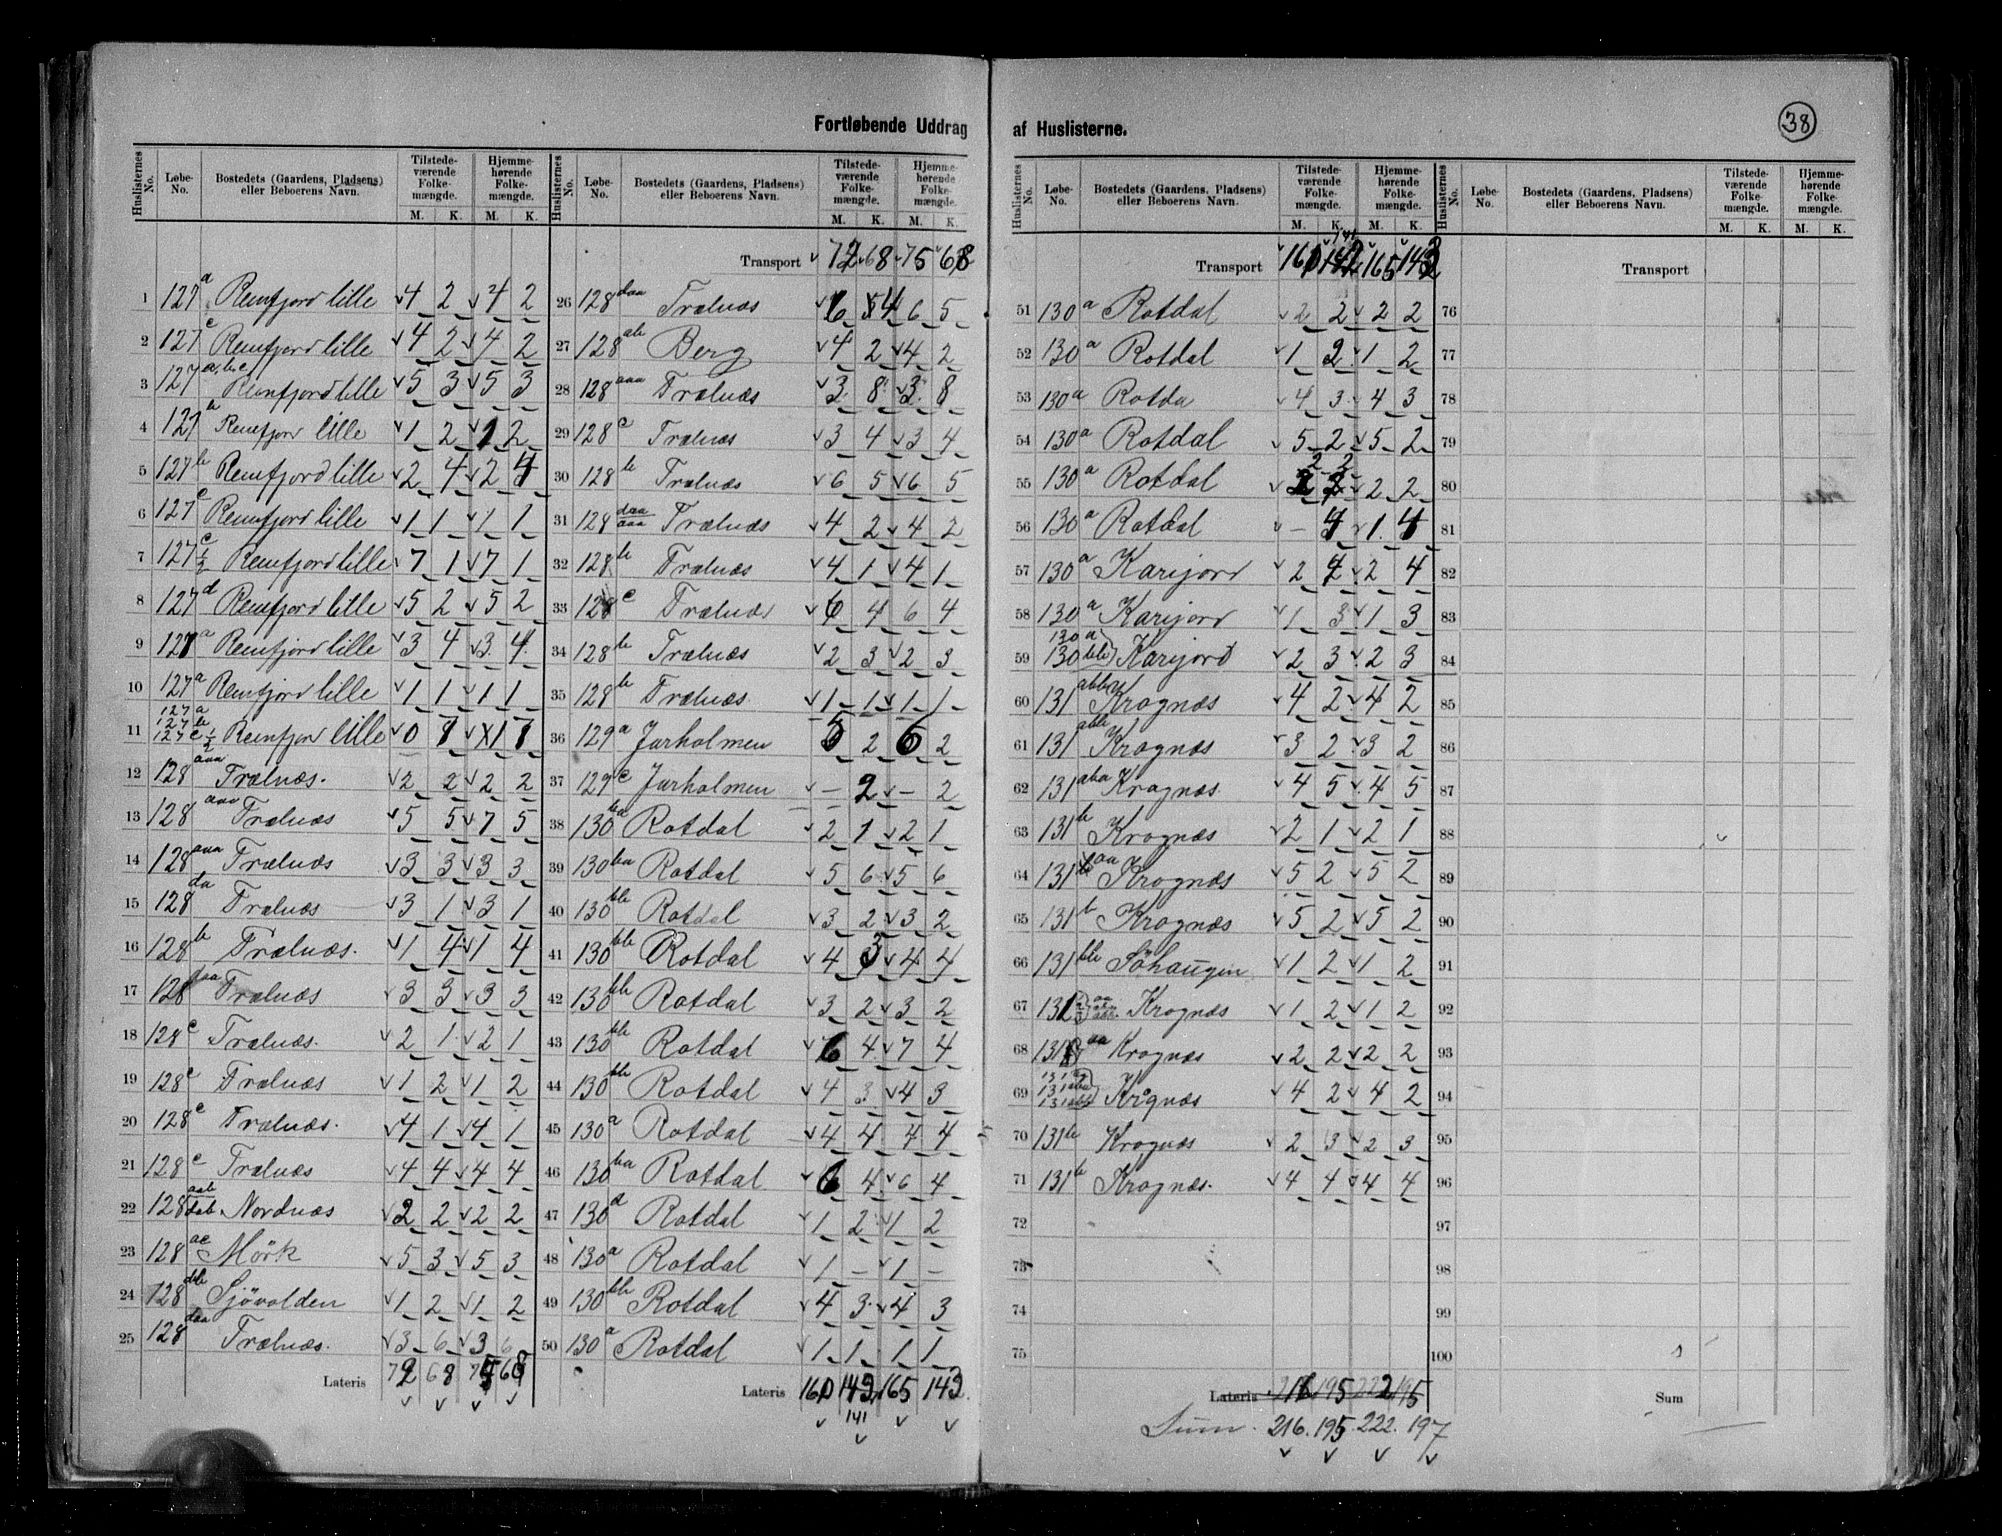 Fortløbende Uddrag af Huslisterne.
38
Huslisternes No. Løbe-No. Bostedets (Gaardens, Pladsens) eller Beboerens Navn. Tilstedeværende Folkemængde. M. K. Hjemmehørende Folkemængde. M. K.
1 127 a Remfjord lille 4 2 4 2
2 127 c Remfjord lille 4 2 4 2
3 127 a,b,c Remfjord lille 5 3 5 3
4 127 a Remfjord lille 1 2 1 2
5 127 b Remfjord lille 2 4 2 4
6 127 c Remfjord lille 1 1 1 1
7 127 c 1/2 Remfjord lille 7 1 7 1
8 127 d Remfjord lille 5 2 5 2
9 127 a Remfjord lille 3 4 3 4
10 127 a Remfjord lille 1 1 1 1
11 127 a 127 b 127 c 1/2 Remfjord lille 0 7 1 7
12 128 aaa Trælnæs. 2 2 2 2
13 128 aaa Trælnæs 5 5 7 5
14 128 aaa Trælnæs 3 3 3 3
15 128 da Trælnæs 3 1 3 1
16 128 b Trælnæs. 1 4 1 4
17 128 daa Trælnæs 3 3 3 3
18 128 c Trælnæs. 2 1 2 1
19 128 c Trælnæs 1 2 1 2
20 128 c Trælnæs. 4 1 4 1
21 128 c Trælnæs 4 4 4 4
22 128 aab dab Nordnæs 2 2 2 2
23 128 ac Mörk 5 3 5 3
24 128 db Sjövolden 1 2 1 2
25 128 daa Trælnæs. 3 6 3 6
Lateris 72 68 75 68
Huslisternes No. Løbe-No. Bostedets (Gaardens, Pladsens) eller Beboerens Navn. Tilstedeværende Folkemængde. M. K. Hjemmehørende Folkemængde. M. K.
Transport 72 68 75 68
26 128 daa Trælnæs 6 4 6 5
27 128 ab Berg 4 2 4 2
28 128 aaa Trælnæs 3 8 3 8
29 128 c Trælnæs 3 4 3 4
30 128 b Trælnæs 6 5 6 5
31 128 daa aaa Trælnæs 4 2 4 2
32 128 b Trælnæs 4 1 4 1
33 128 c Trælnæs 6 4 6 4
34 128 b Trælnæs 2 3 2 3
35 128 b Trælnæs 1 1 1 1
36 129 a Jarholmen 5 2 6 2
37 129 c Jarholmen - 2 - 2
38 130 ba Rotdal 2 1 2 1
39 130 ba Rotdal 5 6 5 6
40 130 bb Rotdal 3 2 3 2
41 130 bb Rotdal 4 3 4 4
42 130 bb Rotdal 3 2 3 2
43 130 bb Rotdal 6 4 7 4
44 130 bb Rotdal 4 3 4 3
45 130 a Rotdal 4 4 4 4
46 130 ba Rotdal 6 4 6 4
47 130 a Rotdal 1 2 1 2
48 130 a Rotdal 1 - 1 -
49 130 bb Rotdal 4 3 4 3
50 130 a Rotdal 1 1 1 1
Lateris 160 142 165 143
141
Huslisternes No. Løbe-No. Bostedets (Gaardens, Pladsens) eller Beboerens Navn. Tilstedeværende Folkemængde. M. K. Hjemmehørende Folkemængde. M. K.
141
Transport 160 142 165 143
51 130 a Rotdal 2 2 2 2
52 130 a Rotdal 1 2 1 2
53 130 a Rotda 4 3 4 3
54 130 a Rotdal 5 2 5 2
55 130 a Rotdal 2 2 2 2
56 130 a Rotdal - 4 1 4
57 130 a Karijord 2 4 2 4
58 130 a Karijord 1 3 1 3
59 130 a 130 bb Karijord 2 3 2 3
60 131 abb Krognæs 4 2 4 2
61 131 abb Krognæs 3 2 3 2
62 131 aba Krognæs. 4 5 4 5
63 131 b Krognæs 2 1 2 1
64 131 aa Krognæs 5 2 5 2
65 131 b Krognæs 5 2 5 2
66 131 bb Söhaugen 1 2 1 2
67 131 Krognæs 1 2 1 2
68 131 aa Krognæs 2 2 2 2
69 131 131 aba 131 abb Krognæs 4 2 4 2
70 131 b Krognæs 2 3 2 3
71 131 b Krognæs. 4 4 4 4
72
73
74
75
Lateris 216 195 222 195
Sum 216. 195 222. 197
Huslisternes No. Løbe-No. Bostedets (Gaardens, Pladsens) eller Beboerens Navn. Tilstedeværende Folkemængde. M. K. Hjemmehørende Folkemængde. M. K.
Transport
76
77
78
79
80
81
82
83
84
85
86
87
88
89
90
91
92
93
94
95
96
97
98
99
100
Sum